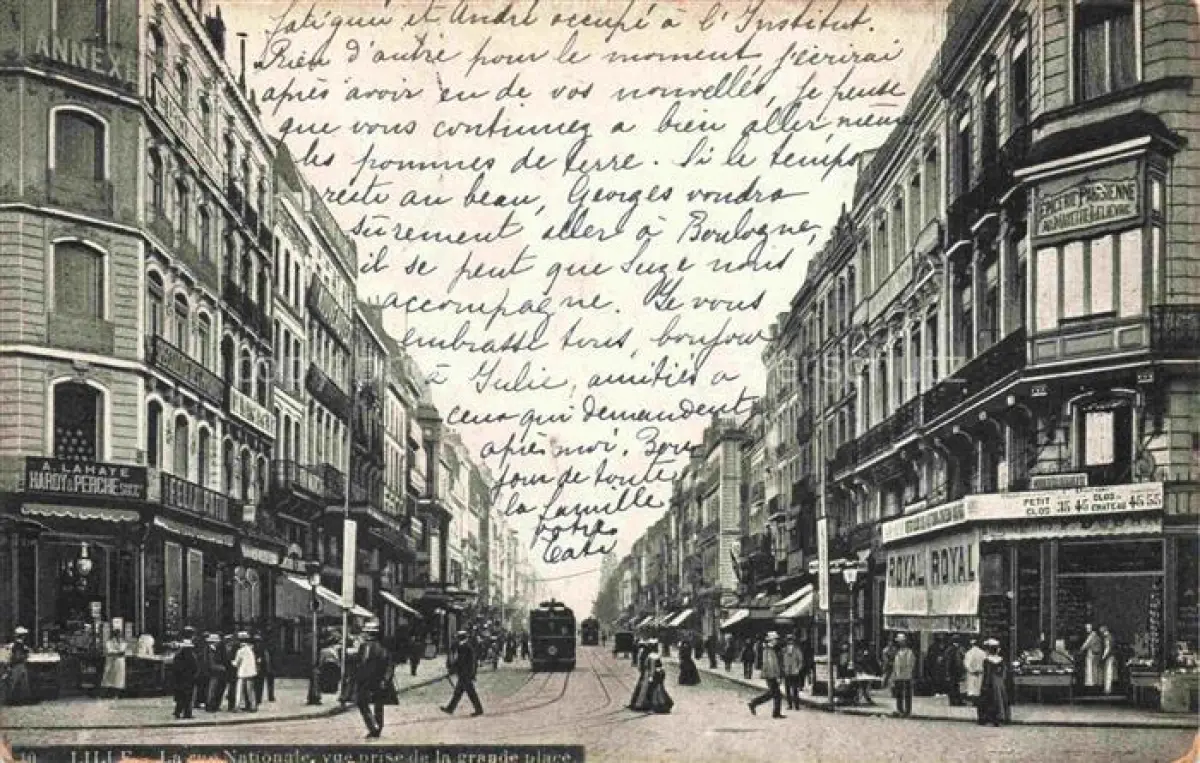 fatigué et André occupé à l'Institut.
Rien d'autre pour le moment j'écrirai
après avoir eu de vos nouvelles, je pense
que vous continuez a bien aller, même
les pommes de terre. Si le temps
reste au beau, Georges voudra
sûrement aller à Boulogne,
il se peut que Suze nous
accompagne. Je vous
embrasse tous, bonjour
à Julie, amitiés a
ceux qui demandent
après moi. Bon
jour de toute
la famille
votre
ANNEXE
A. LAHAYE
HARDY & PERCHE SUCC
FELIX
PARISIENNE
PETIT CLOS 35 45 CLOS CHATEAU 45 55
ROYAL ROYAL
10 LILLE - La rue Nationale, vue prise de la grande place.